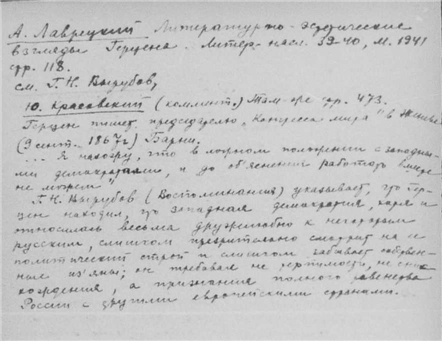 А. Лаврецкий Литературно-эстетические
взгляды Герцена. Литер. насл. 39-40, М. 1941
стр. 118.
см. Г. Н. Вырубов,
Ю. Красовский (коммент.) Там-же стр. 473.
Герцен пишет председателю „Конгресса мира" в Женеве
(9 сент. 1867 г) Барни.
... Я нахожу, что в ложном положении с западны-
ми демократами, и до объяснения работать вместе
не можем"
Г. Н. Вырубов (Воспоминания) указывает, что Гер-
цен находил, что западная демократия, хотя и
относилась весьма дружелюбно к некоторым
русским, слишком презрительно смотрит на их
политический строй и слишком забывает собствен-
ные изъяны; он требовал не терпимости, не снис
хождения, а признания полного равенства
России с другими европейскими странами.